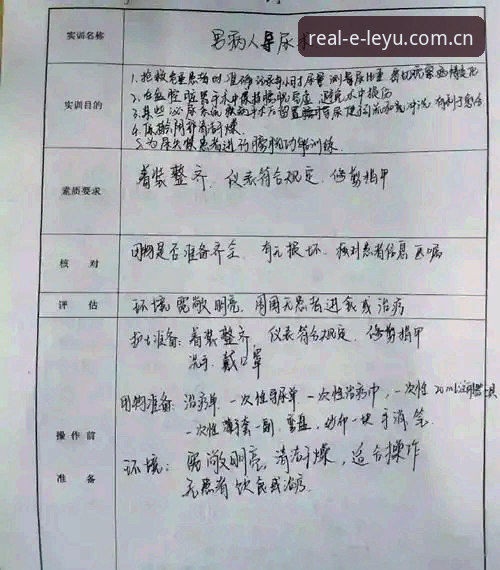 real-e-leyu.com.cn
实训名称 男病人导尿术
实训目的
1.抢救危重患者时准确记录每小时尿量 测尿比重 密切观察病情变化
2.在盆腔脏器手术中保持膀胱 避免术中损伤
3.某些泌尿系统疾病手术后留置导尿 便于引流和冲洗
4.保持 干燥
5.为尿失禁患者进行膀胱功能训练.
素质要求 着装整齐、仪表符合规定、修剪指甲
核 对 用物是否准备齐全、有无损坏. 核对患者信息 医嘱
评 估 环境宽敞明亮, 周围无患者进食或治疗
护士准备: 着装整齐、仪表符合规定、修剪指甲
洗手 戴口罩
用物准备: 治疗单、一次性导尿单、一次性治疗巾、一次性 20ml
一次性 一副、弯盘、纱布一块 手消 笔
操作前
准 备
环境: 宽敞明亮, 清洁干燥, 适合操作
无患者饮食或治疗.